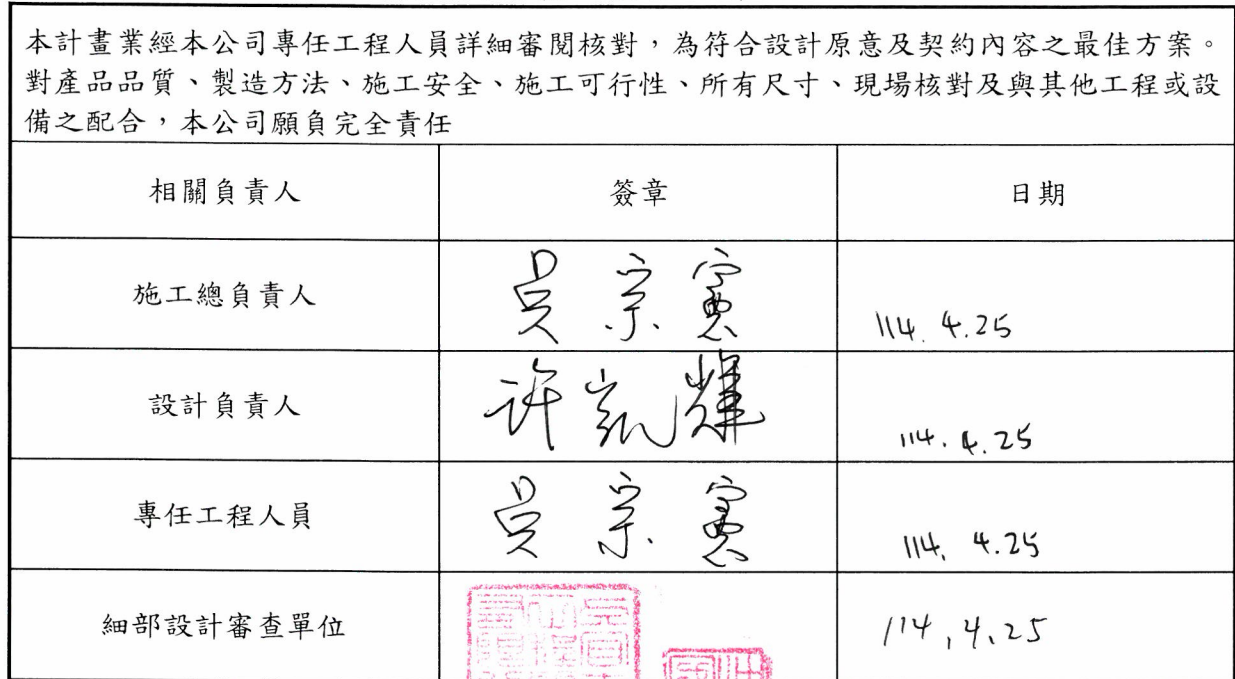 本計畫業經本公司專任工程人員詳細審閱核對，為符合設計原意及契約內容之最佳方案。
對產品品質、製造方法、施工安全、施工可行性、所有尺寸、現場核對及與其他工程或設
備之配合，本公司願負完全責任
相關負責人 簽章 日期
施工總負責人 吳宗 114.4.25
設計負責人 许凱輝 114.4.25
專任工程人員 吳宗 114.4.25
細部設計審查單位 114.4.25